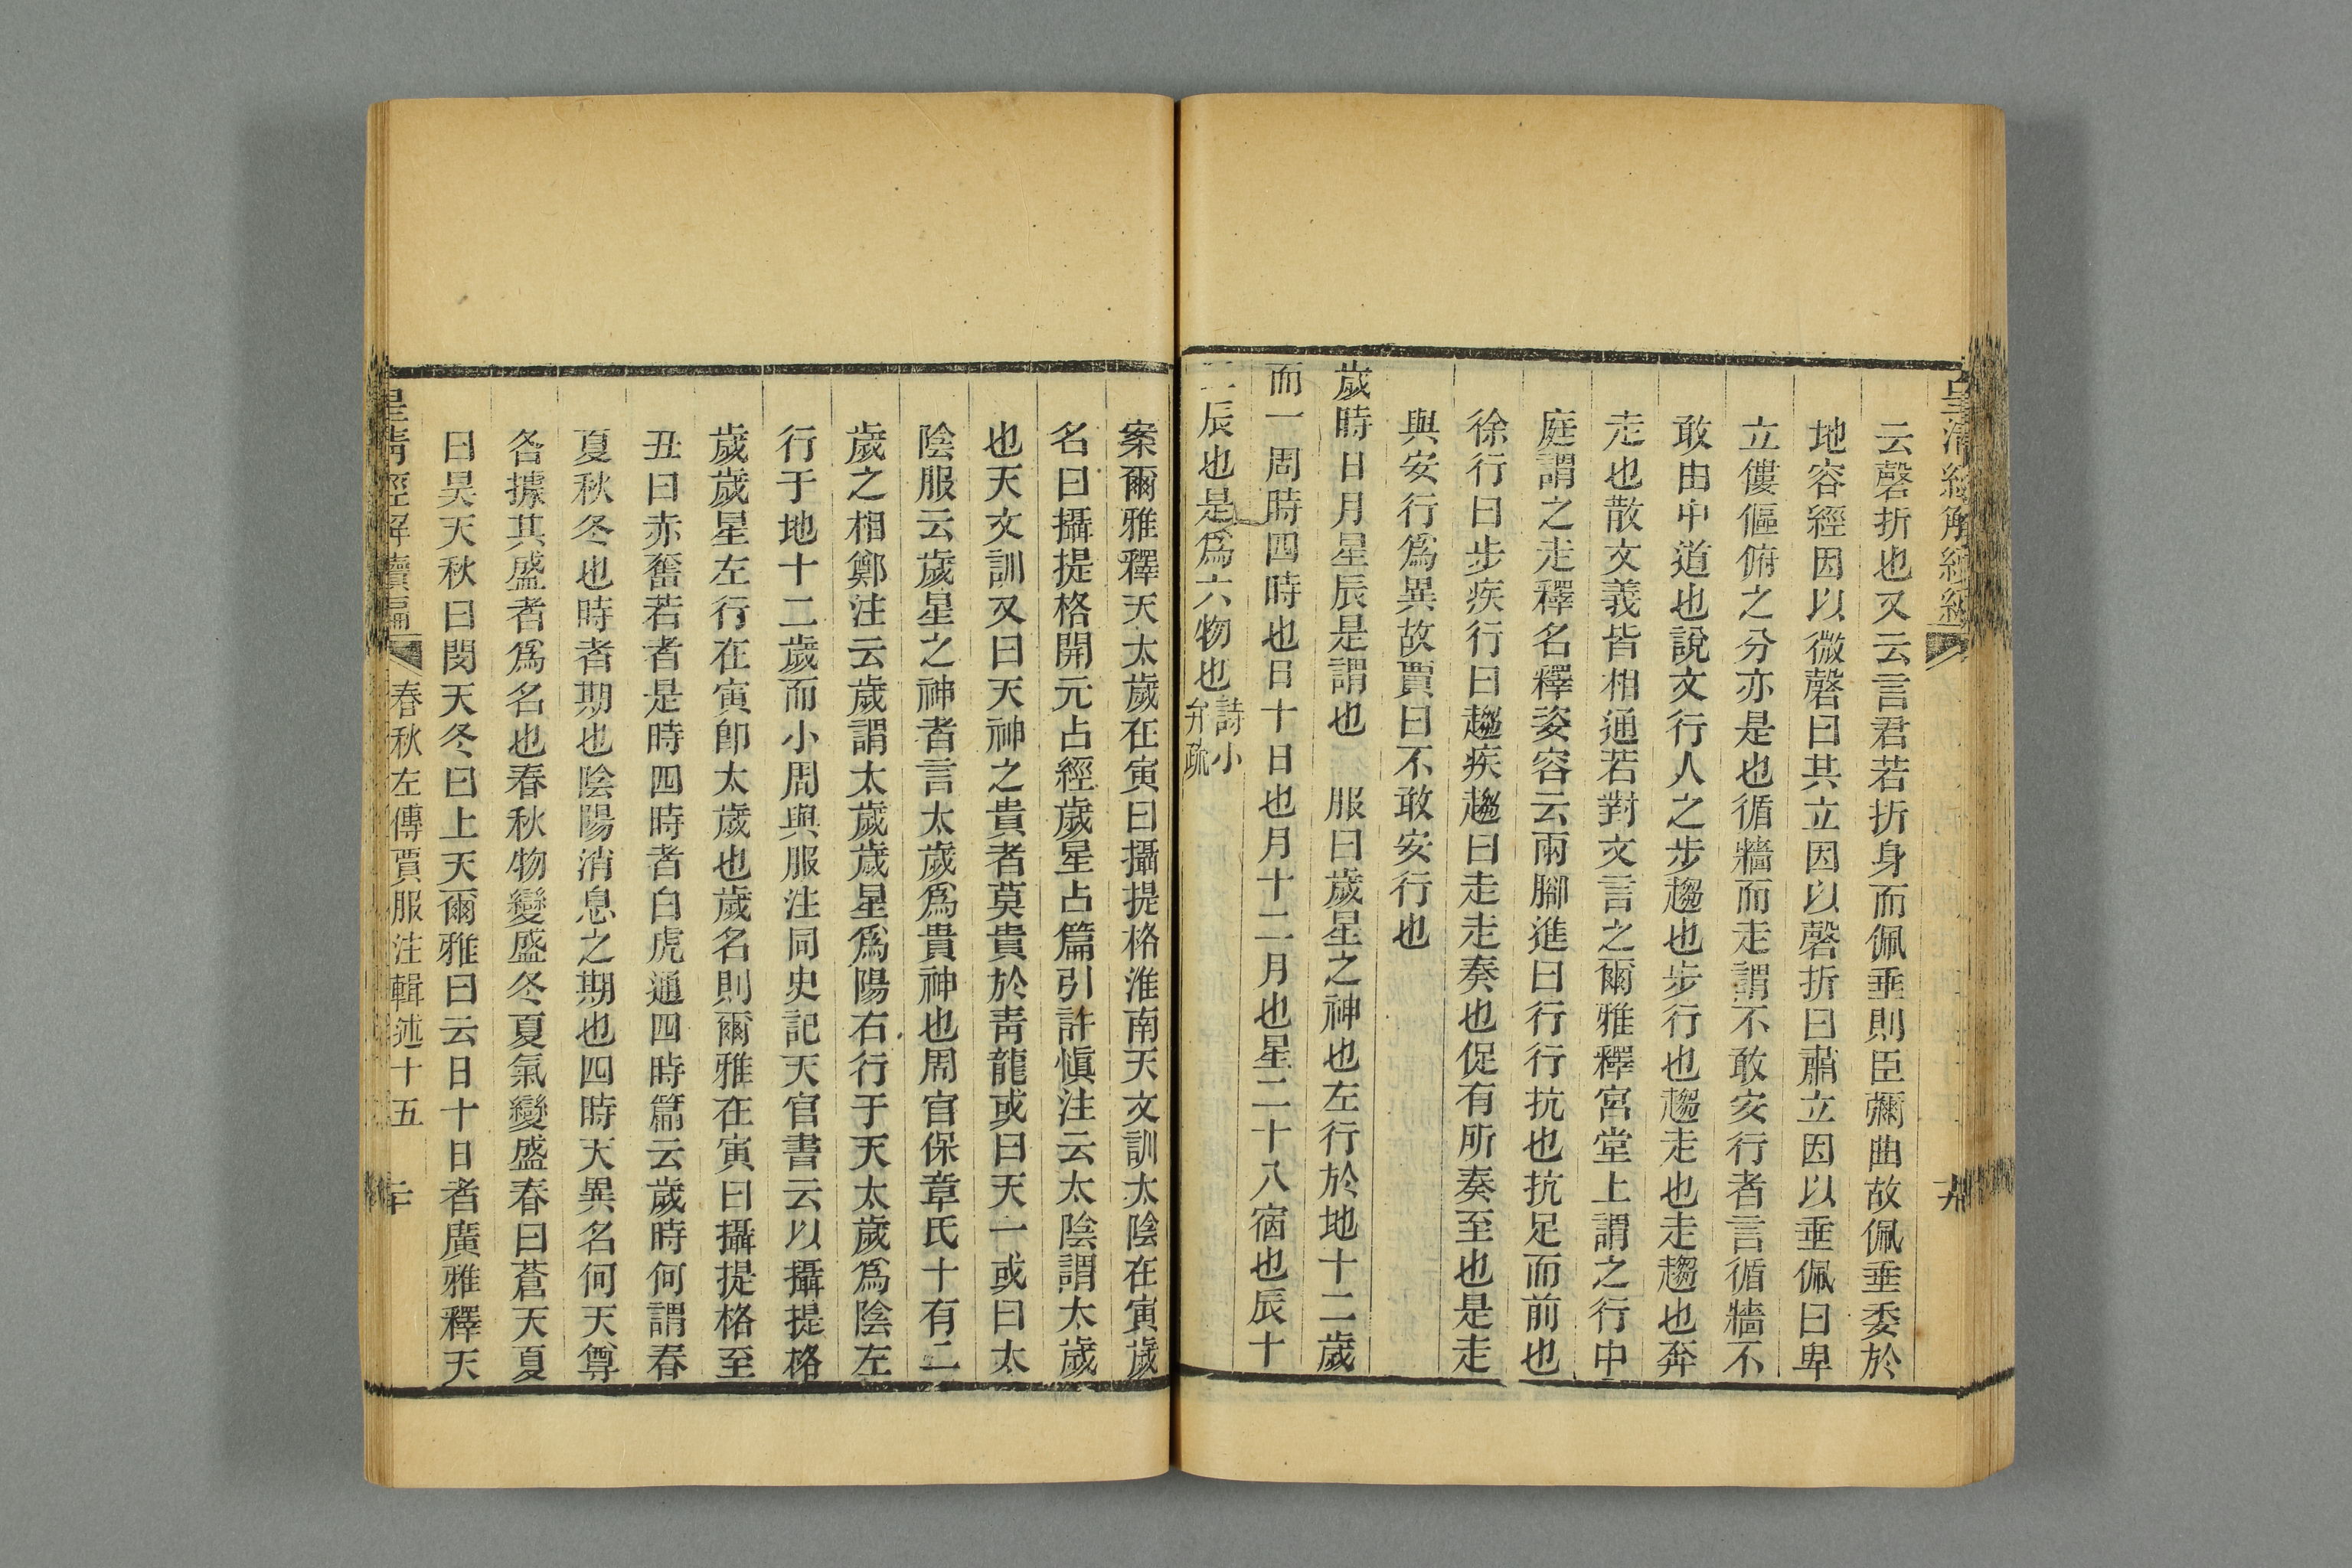 云磬折也又云言君若折身而佩垂則臣彌曲故佩垂委於
地容經因以微磬曰共立因以磬折曰肅立因以垂佩曰卑
立僂傴俯之分亦是也循牆而走謂不敢安行者言循牆不
敢由中道也說文行人之步趨也步行也趨走也走趨也奔
走也散文義皆相通若對文言之爾雅釋宮堂上謂之行中
庭謂之走釋名釋姿容云兩腳進曰行行抗也抗足而前也
徐行曰步疾行曰趨疾趨曰走走奏也促有所奏至也是走
與安行爲異故賈曰不敢安行也
歲時日月星辰是謂也　服曰歲星之神也左行於地十二歲
而一周時四時也日十日也月十二月也星二十八宿也辰十
二辰也是爲六物也詩小弁疏
案爾雅釋天太歲在寅曰攝提格淮南天文訓太陰在寅歲
名曰攝提格開元占經歲星占篇引許愼注云太陰謂太歲
也天文訓又曰天神之貴者莫貴於靑龍或曰天一或曰太
陰服云歲星之神者言太歲爲貴神也周官保章氏十有二
歲之相鄭注云歲謂太歲歲星爲陽右行于天太歲爲陰左
行于地十二歲而小周與服注同史記天官書云以攝提格
歲歲星左行在寅卽太歲也歲名則爾雅在寅曰攝提格至
丑曰赤奮若者是時四時者白虎通四時篇云歲時何謂春
夏秋冬也時者期也陰陽消息之期也四時天異名何天尊
各據其盛者爲名也春秋物變盛冬夏氣變盛春曰蒼天夏
曰昊天秋曰閔天冬曰上天爾雅曰云日十日者廣雅釋天
皇清經解續編　春秋左傳賈服注輯述十五　二十